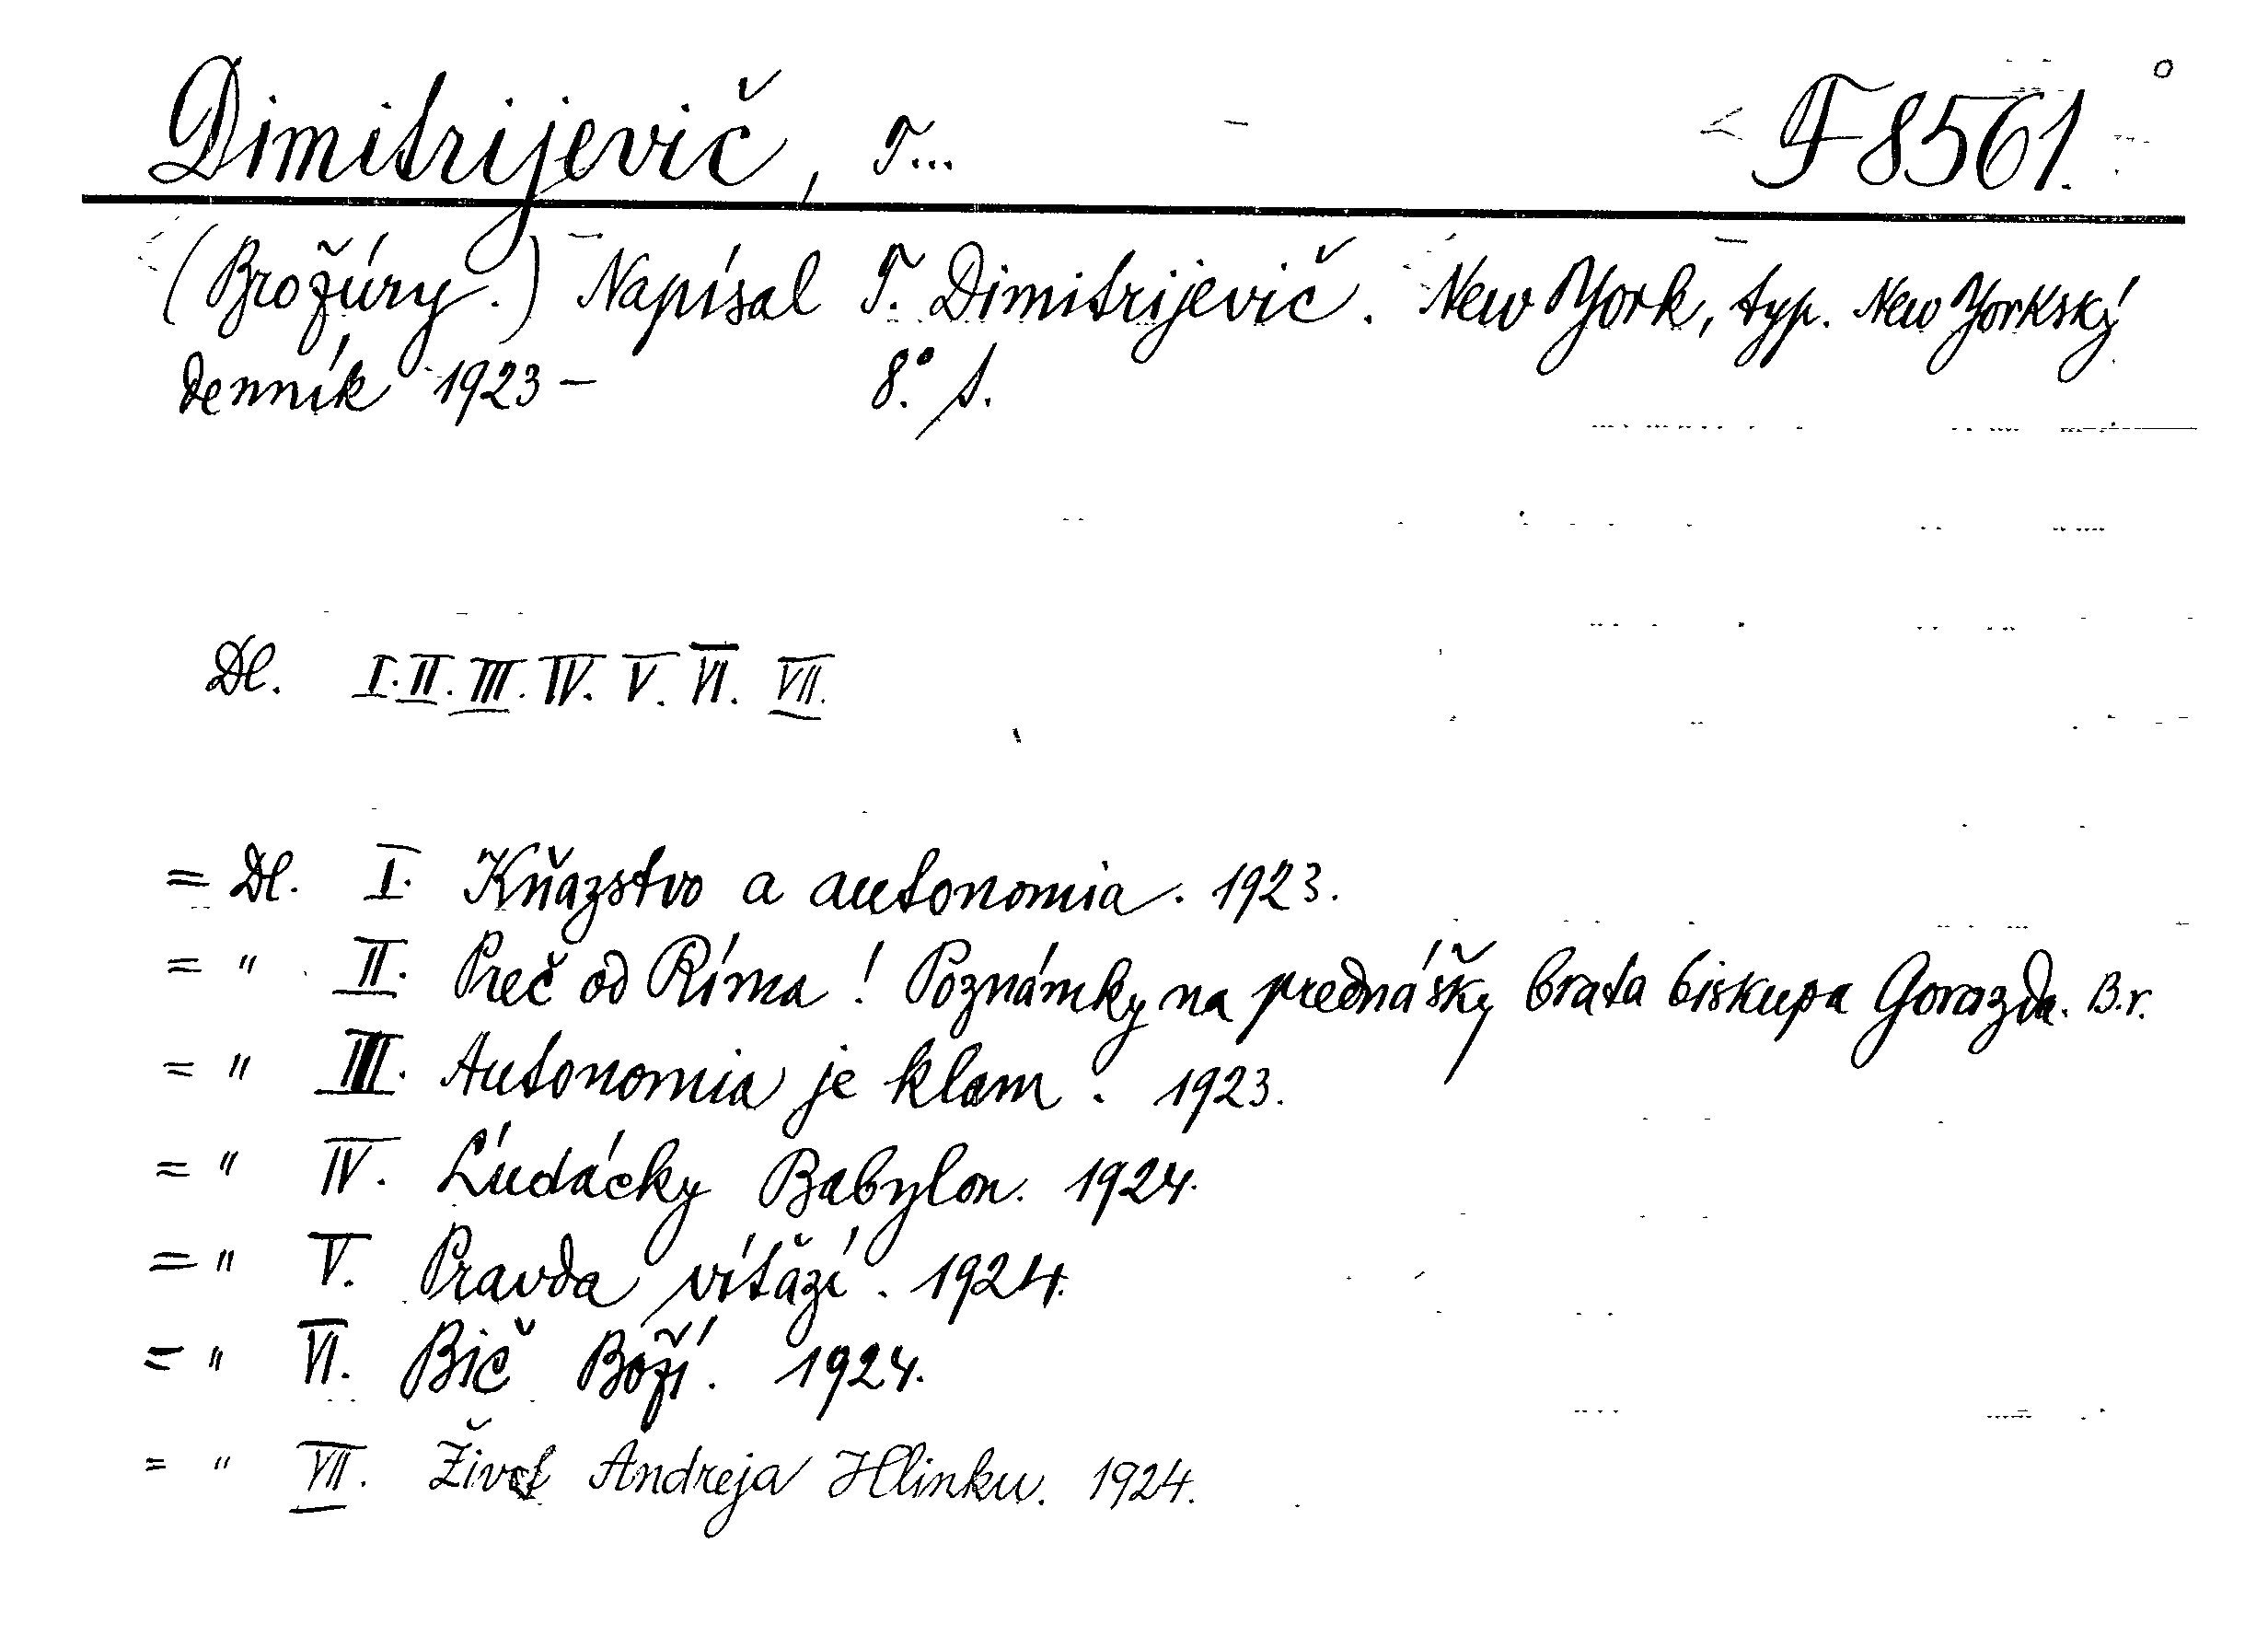 Dimitrijevič, T... F 8561.
(Brožúry.) Napísal T. Dimitrijevič. New York, typ. New Yorkský
denník 1923 – 8°. s.
Dl. I. II. III. IV. V. VI. VII.
= Dl. I. Kňazstvo a autonomia. 1923.
= " II. Preč od Ríma! Poznámky na prednášky brata biskupa Gorazda. B.r.
= " III. Autonomia je klam. 1923.
= " IV. Ĺudácky Babylon. 1924.
= " V. Pravda víťazí. 1924.
= " VI. Bič Boží. 1924.
= " VII. Život Andreja Hlinku. 1924.